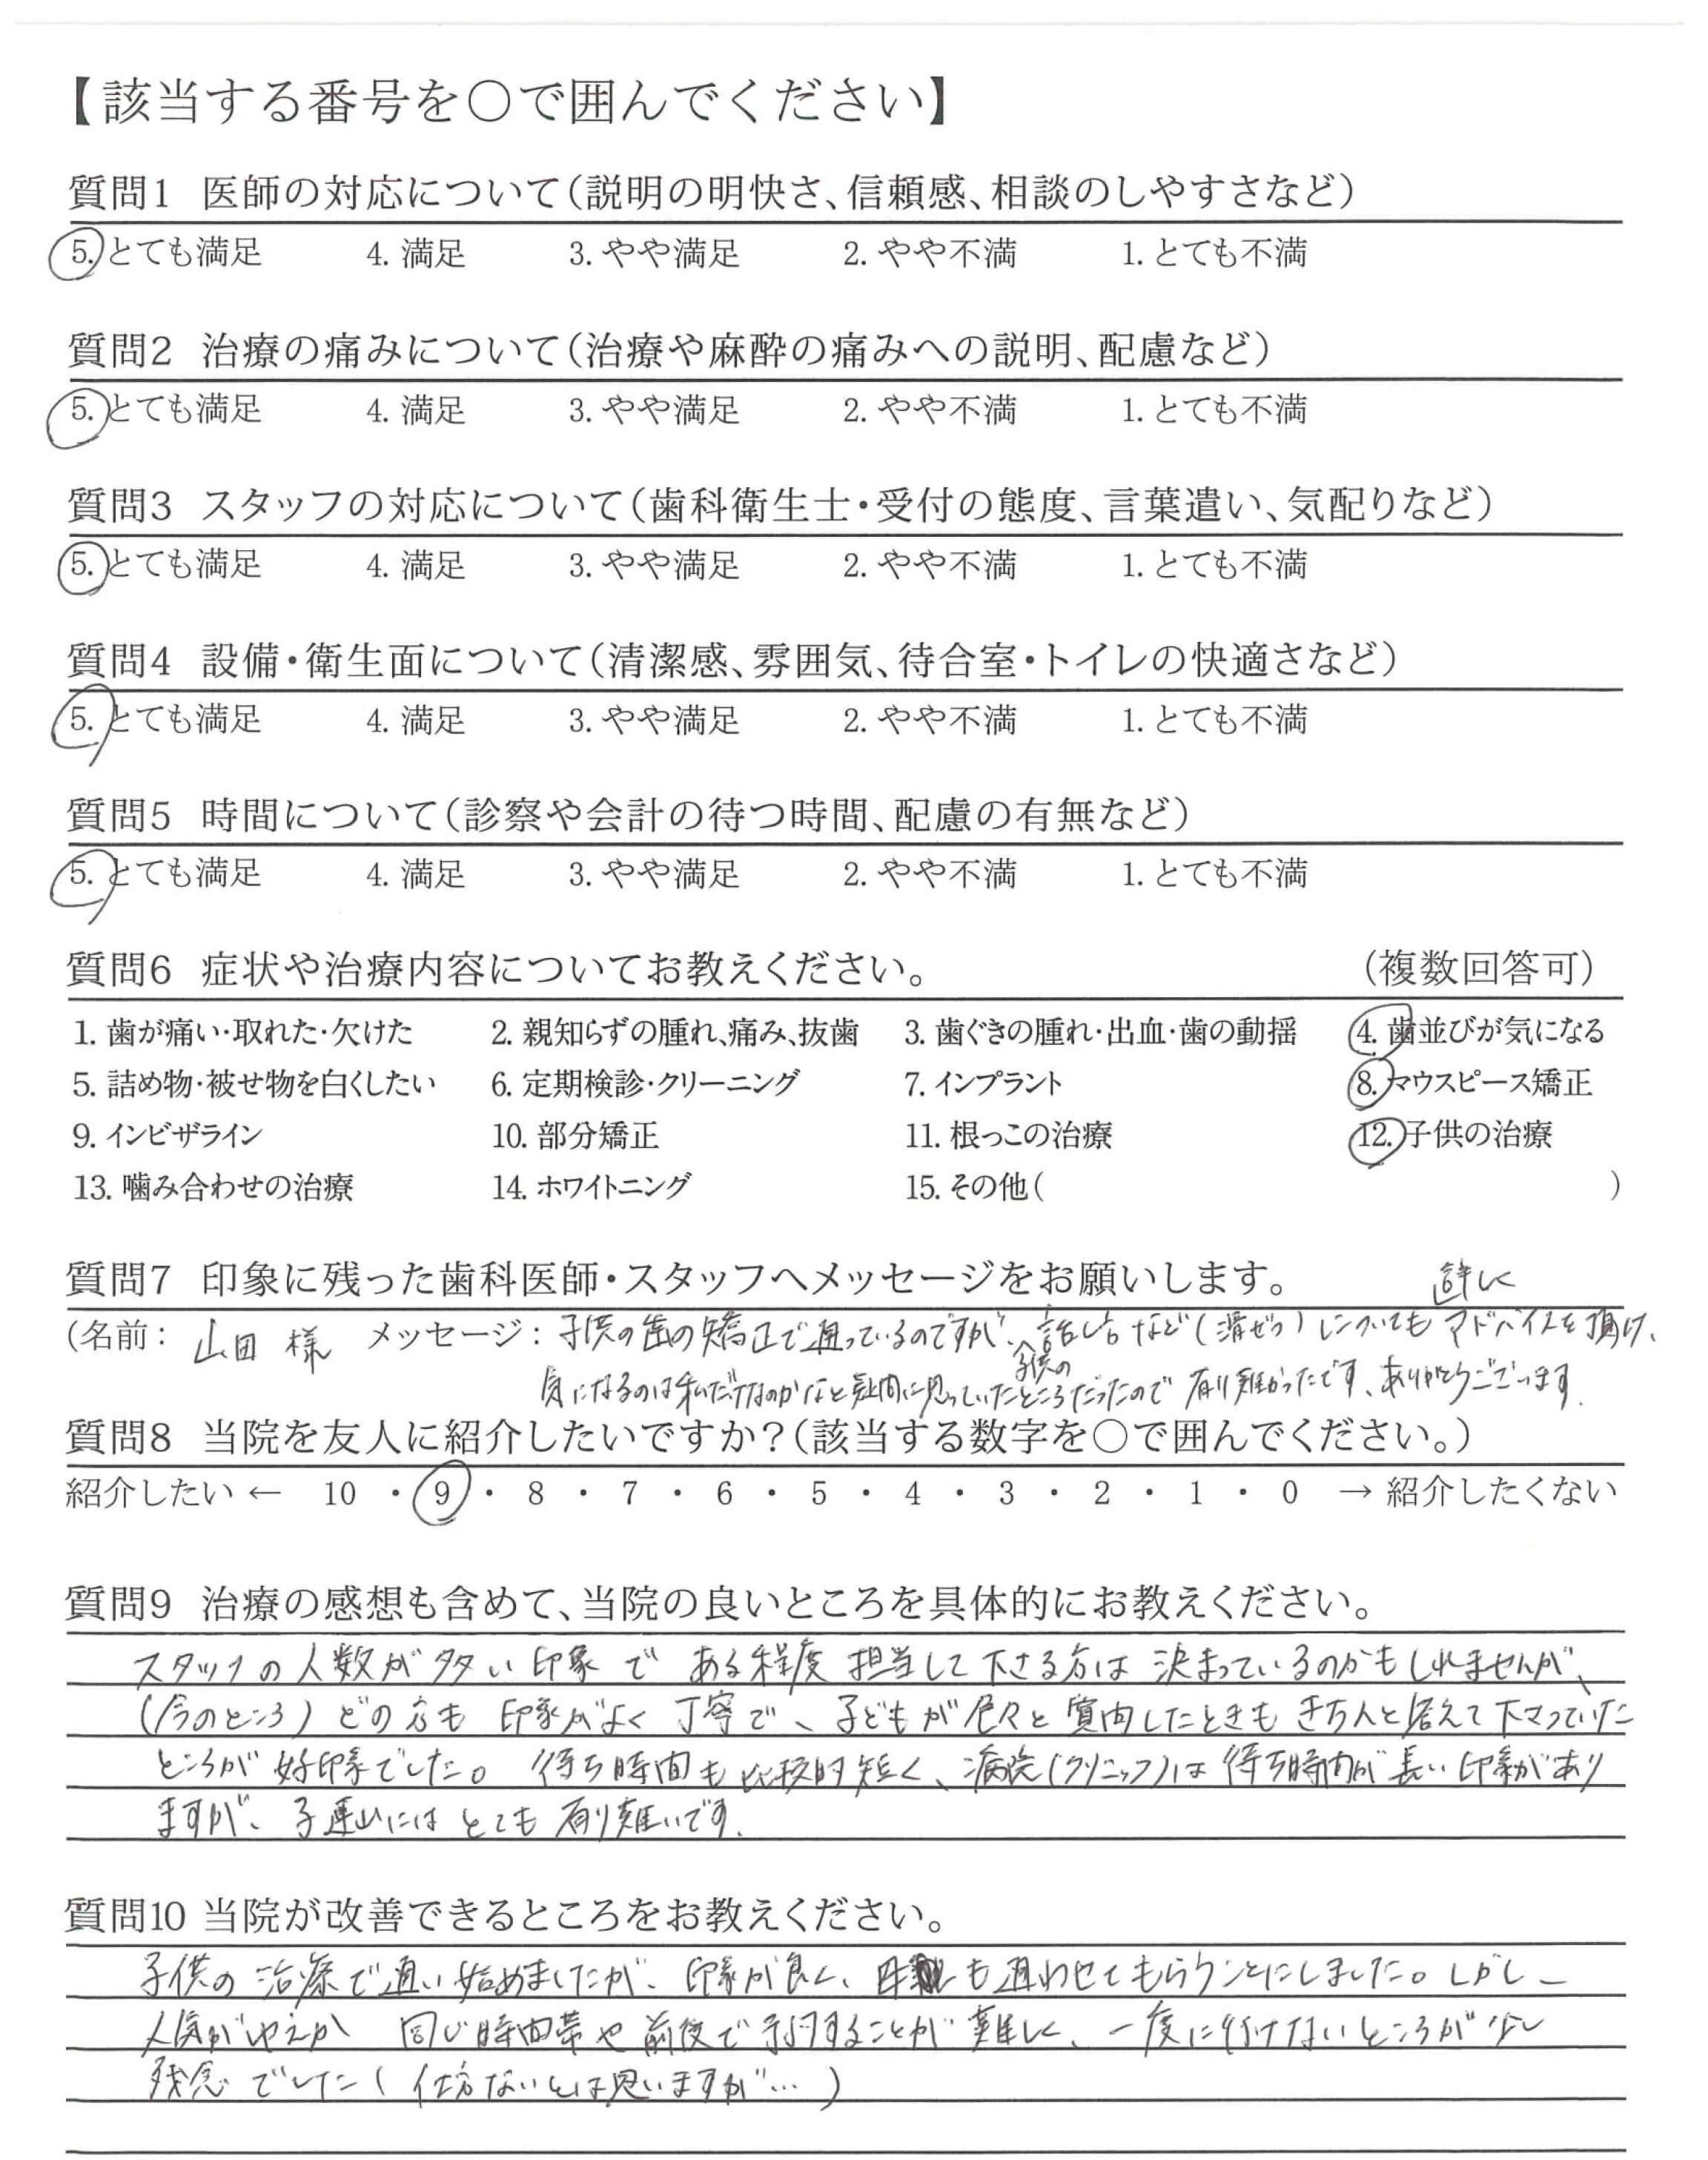 【該当する番号を○で囲んでください】
質問1 医師の対応について(説明の明快さ、信頼感、相談のしやすさなど)
5. とても満足 4. 満足 3. やや満足 2. やや不満 1. とても不満
質問2 治療の痛みについて(治療や麻酔の痛みへの説明、配慮など)
5. とても満足 4. 満足 3. やや満足 2. やや不満 1. とても不満
質問3 スタッフの対応について(歯科衛生士・受付の態度、言葉遣い、気配りなど)
5. とても満足 4. 満足 3. やや満足 2. やや不満 1. とても不満
質問4 設備・衛生面について(清潔感、雰囲気、待合室・トイレの快適さなど)
5. とても満足 4. 満足 3. やや満足 2. やや不満 1. とても不満
質問5 時間について(診察や会計の待つ時間、配慮の有無など)
5. とても満足 4. 満足 3. やや満足 2. やや不満 1. とても不満
質問6 症状や治療内容についてお教えください。 (複数回答可)
1. 歯が痛い・取れた・欠けた 2. 親知らずの腫れ、痛み、抜歯 3. 歯ぐきの腫れ・出血・歯の動揺 4. 歯並びが気になる
5. 詰め物・被せ物を白くしたい 6. 定期検診・クリーニング 7. インプラント 8. マウスピース矯正
9. インビザライン 10. 部分矯正 11. 根っこの治療 12. 子供の治療
13. 噛み合わせの治療 14. ホワイトニング 15. その他( )
質問7 印象に残った歯科医師・スタッフへメッセージをお願いします。
詳しく
(名前: 山田 様 メッセージ: 子供の歯の矯正で通っているのですが、話し方など(滑ぜつ)についても アドバイスを頂け、
子供の
気になるのは私だけなのかなと疑問に思っていたところだったので 有り難かったです、ありがとうございます.
質問8 当院を友人に紹介したいですか?(該当する数字を○で囲んでください。)
紹介したい ← 10 ・ 9 ・ 8 ・ 7 ・ 6 ・ 5 ・ 4 ・ 3 ・ 2 ・ 1 ・ 0 → 紹介したくない
質問9 治療の感想も含めて、当院の良いところを具体的にお教えください。
スタッフの人数が多い印象で ある程度 担当して下さる方は 決まっているのかもしれませんが、
(今のところ) どの方も 印象がよく 丁寧で、子どもが色々と質問したときもきちんと答えて下さっていた
ところが 好印象でした。 待ち時間も比較的短く、病院(クリニック)は待ち時間が長い印象があり
ますが、子連れにはとても有り難いです.
質問10 当院が改善できるところをお教えください。
子供の治療で通い始めましたが、印象が良く、も通わせてもらうことにしました。しかし
人気がゆえか 同じ時間帯や前後で予約することが難しく、一度に行けないところが少し
残念でした(仕方ないとは思いますが…)